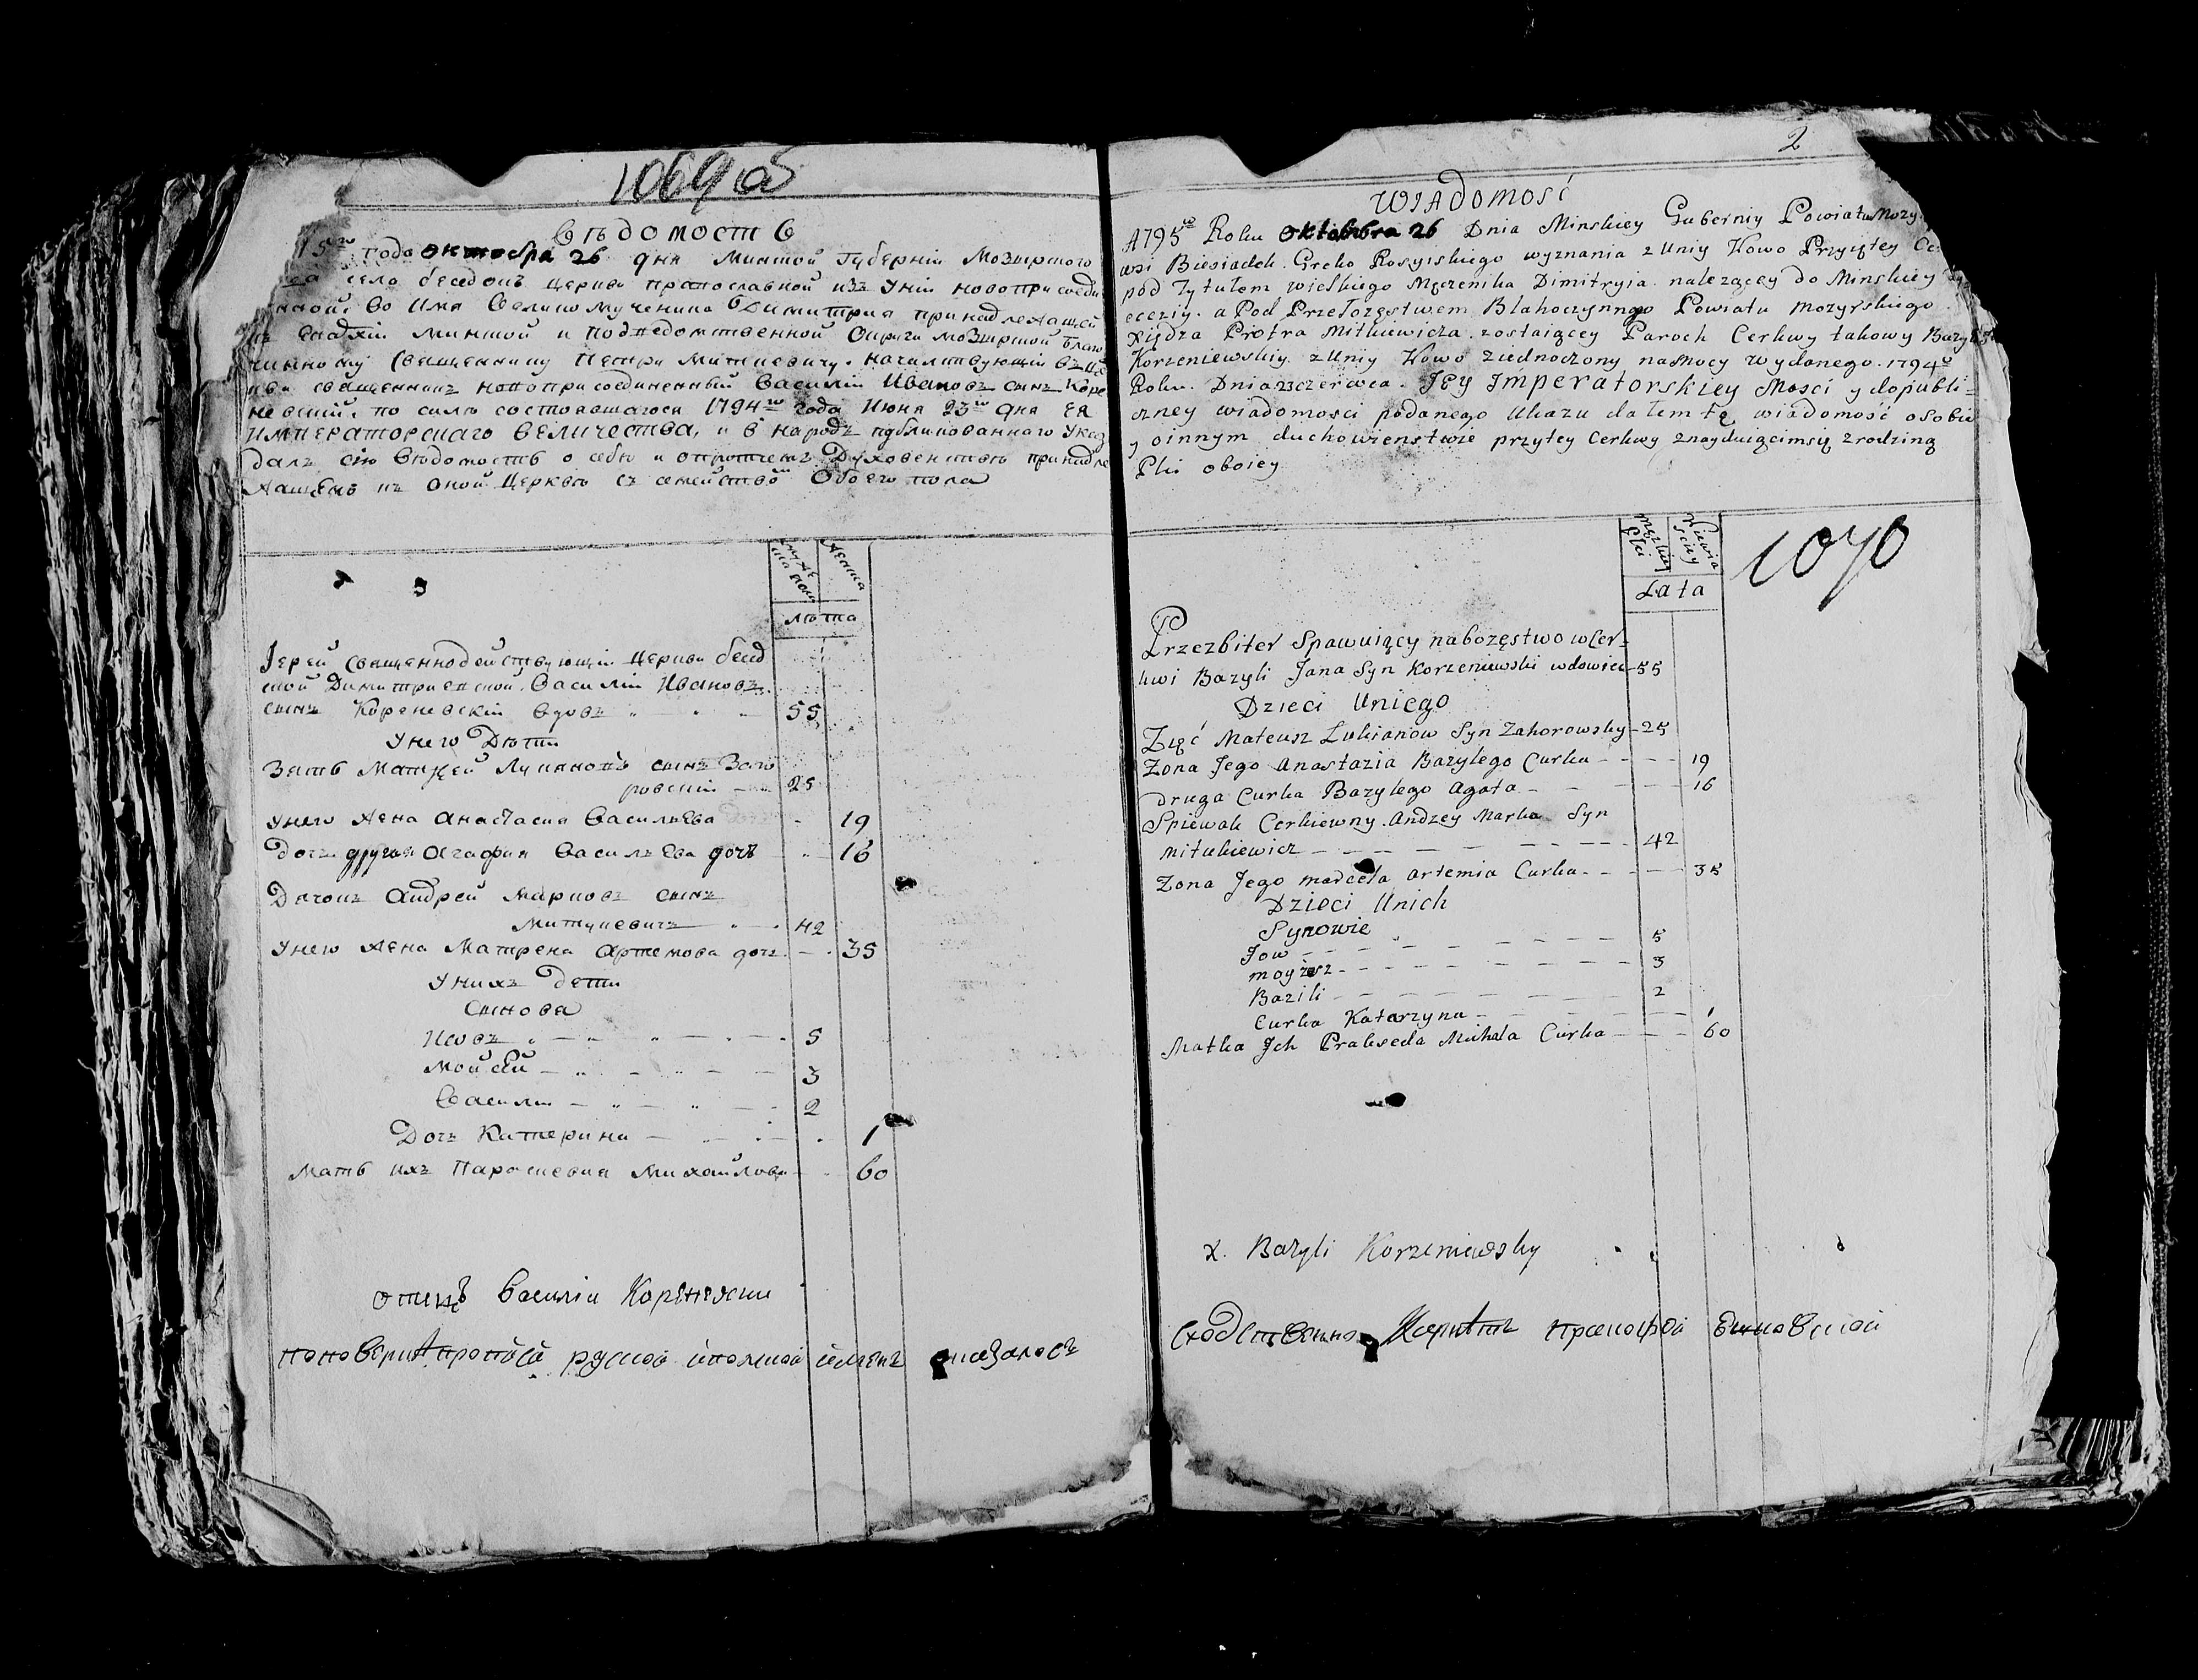 1069 об
Вѣдомость
года октобра 26 дня Минской Губернїи Мозырского
село беседокъ церкви православной изъ Унїи новоприсоеди
во Имя Великомученика Димитрия принадлежащей
Епархїи Минской и подведомственной Округи мозырской благо
чинному Священнику Петри Миткевичу. начилствующїй въ
священникъ новоприсоединенный Василїй Ивановъ сынъ Коре
невскїй. по силѣ состоявшагося 1794го года Июня 23го дня ЕЯ
ИМПЕРАТОРСКАГО ВЕЛИЧЕСТВА, и в народъ публикованнаго Указа
далъ сїю Вѣдомость о себѣ и опротчемъ Духовенствѣ принадле
жащемъ къ оной Церквѣ съ семействой Обоего пола
мужеска пола
женска
лѣта
Іерей священнодействующїй Церкви бесед
ской Димитриевской. Василїй Ивановъ
сынъ Кореневскїй вдовъ 55
Унего Дѣти
Зять Матфей Лукяновъ сынъ Заго
ровскїй 25
Унего жена Анастасия Васильева 19
дочъ другая Агафия Василъева дочъ 16
Дячокъ Андрей Марковъ сынъ
Миткевичъ 42
Унего жена Матрена Артемова дочъ 35
Унихъ дети
Сынова
Иовъ 5
Мойсей 3
Василий 2
Дочъ Катерина 1
Мать ихъ Параскевия Михайлова 60
отецъ Василїй Кореневски
2
WIADOMOSĆ
1795go Roku Oktobra 26 Dnia Minskiey Guberniy Powiatu Mozy
wsi Biesiadek. Greko Rosyiskiego wyznania z Uniy Nowo Przyiętey Ce
pod Tytułem wielkiego Męczenika Dimitryja należącey do Minskiey
ecezyi. a Pod Przełożęstwem Blahoczynnego Powiatu mozyrskiego
Xiędza Piotra Mitkiewicza. zostaiącey Paroch Cerkwy takowy Bazyli
Korzeniewskiy z Uniy Nowo ziednoczony na Mocy wydanego. 1794o
Roku. Dnia 23 czerwca. Jey Jmperatorskiey Mosci y do publi-
czney wiadomosci podanego Ukazu dałem tę wiadomość o sobie
y o innym duchowienstwie przy tey Cerkwy znayduiącimsię z rodziną
Płci oboiey
męzkiey Płci
Niewiasciey
Lata
1070
Przezbiter Spawuiący nabożęstwo w Cer-
kwi Bazyli Jana Syn Korzeniewski wdowiec 55
Dzieci Uniego
Zięć Mateusz Lukianow Syn Zahorowsky 25
Zona Jego Anastazia Bazylego Curka 19
druga Curka Bazylego Agata 16
Spiewak Cerkiewny. Andzey Marka Syn
Mitukiewicz 42
Zona Jego marcela artemia Curka 35
Dzieci Unich
Synowie
Jow 5
moyżesz 3
Bazili 2
Curka Katarzyna 1
Matka Jch Prakseda Michała Curka 60
X. Bazyli Korzeniewsky